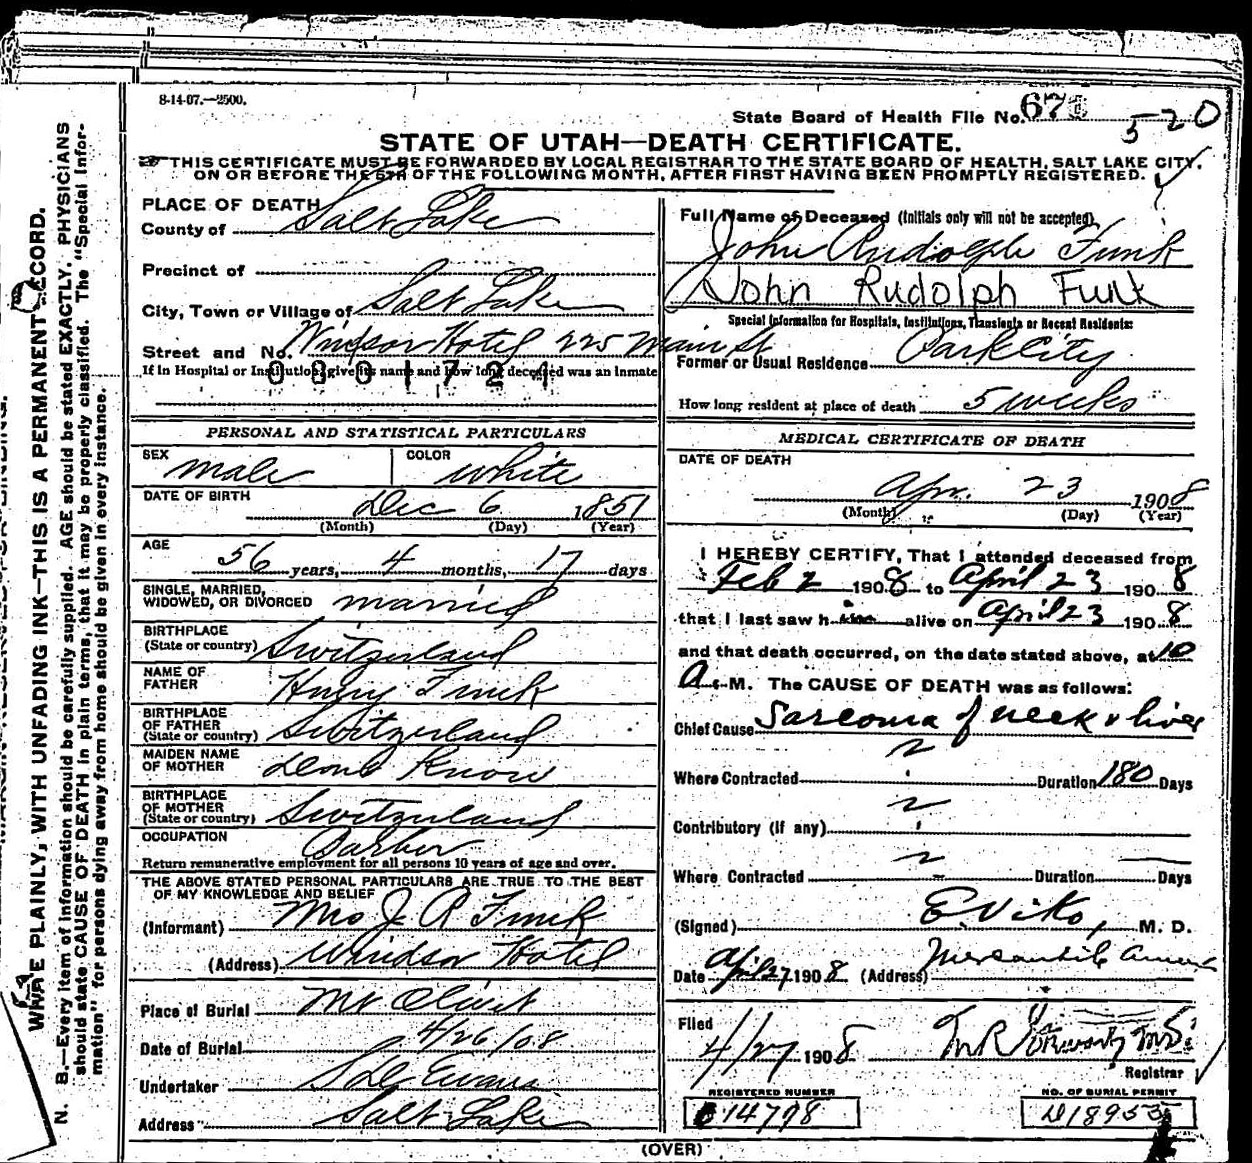 8-14-07.—2500.
State Board of Health File No. 67
520
STATE OF UTAH—DEATH CERTIFICATE.
THIS CERTIFICATE MUST BE FORWARDED BY LOCAL REGISTRAR TO THE STATE BOARD OF HEALTH, SALT LAKE CITY,
ON OR BEFORE THE 5TH OF THE FOLLOWING MONTH, AFTER FIRST HAVING BEEN PROMPTLY REGISTERED.
PLACE OF DEATH
County of Salt Lake
Precinct of
City, Town or Village of Salt Lake
Street and No. Windsor Hotel 225 Main St
If in Hospital or Institution, give its name and how long deceased was an inmate
0801724
PERSONAL AND STATISTICAL PARTICULARS
SEX male COLOR white
DATE OF BIRTH Dec 6 1851
(Month) (Day) (Year)
AGE 56 years, 4 months, 17 days
SINGLE, MARRIED,
WIDOWED, OR DIVORCED married
BIRTHPLACE
(State or country) Switzerland
NAME OF
FATHER Henry Funk
BIRTHPLACE
OF FATHER
(State or country) Switzerland
MAIDEN NAME
OF MOTHER Dont Know
BIRTHPLACE
OF MOTHER
(State or country) Switzerland
OCCUPATION Barber
Return remunerative employment for all persons 10 years of age and over.
THE ABOVE STATED PERSONAL PARTICULARS ARE TRUE TO THE BEST
OF MY KNOWLEDGE AND BELIEF
(Informant) Mrs J R Funk
(Address) Windsor Hotel
Place of Burial Mt Olivet
Date of Burial 4/26/08
Undertaker Evans
Address Salt Lake
Full Name of Deceased (Initials only will not be accepted)
John Rudolph Funk
John Rudolph Funk
Special Information for Hospitals, Institutions, Transients or Recent Residents:
Former or Usual Residence Park City
How long resident at place of death 5 weeks
MEDICAL CERTIFICATE OF DEATH
DATE OF DEATH
Apr. 23 1908
(Month) (Day) (Year)
I HEREBY CERTIFY, That I attended deceased from
Feb 2 1908 to April 23 1908
that I last saw h im alive on April 23 1908
and that death occurred, on the date stated above, at 10
A. M. The CAUSE OF DEATH was as follows:
Chief Cause Sarcoma of neck & liver
Where Contracted Duration 180 Days
Contributory (if any)
Where Contracted Duration Days
(Signed) E Viko, M. D.
Date Apl 27 1908 (Address) Mercantile
Filed
4/27 1908
Registrar
REGISTERED NUMBER
14798
NO. OF BURIAL PERMIT
D18955
(OVER)
WRITE PLAINLY, WITH UNFADING INK—THIS IS A PERMANENT RECORD.
N. B.—Every item of information should be carefully supplied. AGE should be stated EXACTLY. PHYSICIANS
should state CAUSE OF DEATH in plain terms, that it may be properly classified. The "Special Infor-
mation" for persons dying away from home should be given in every instance.